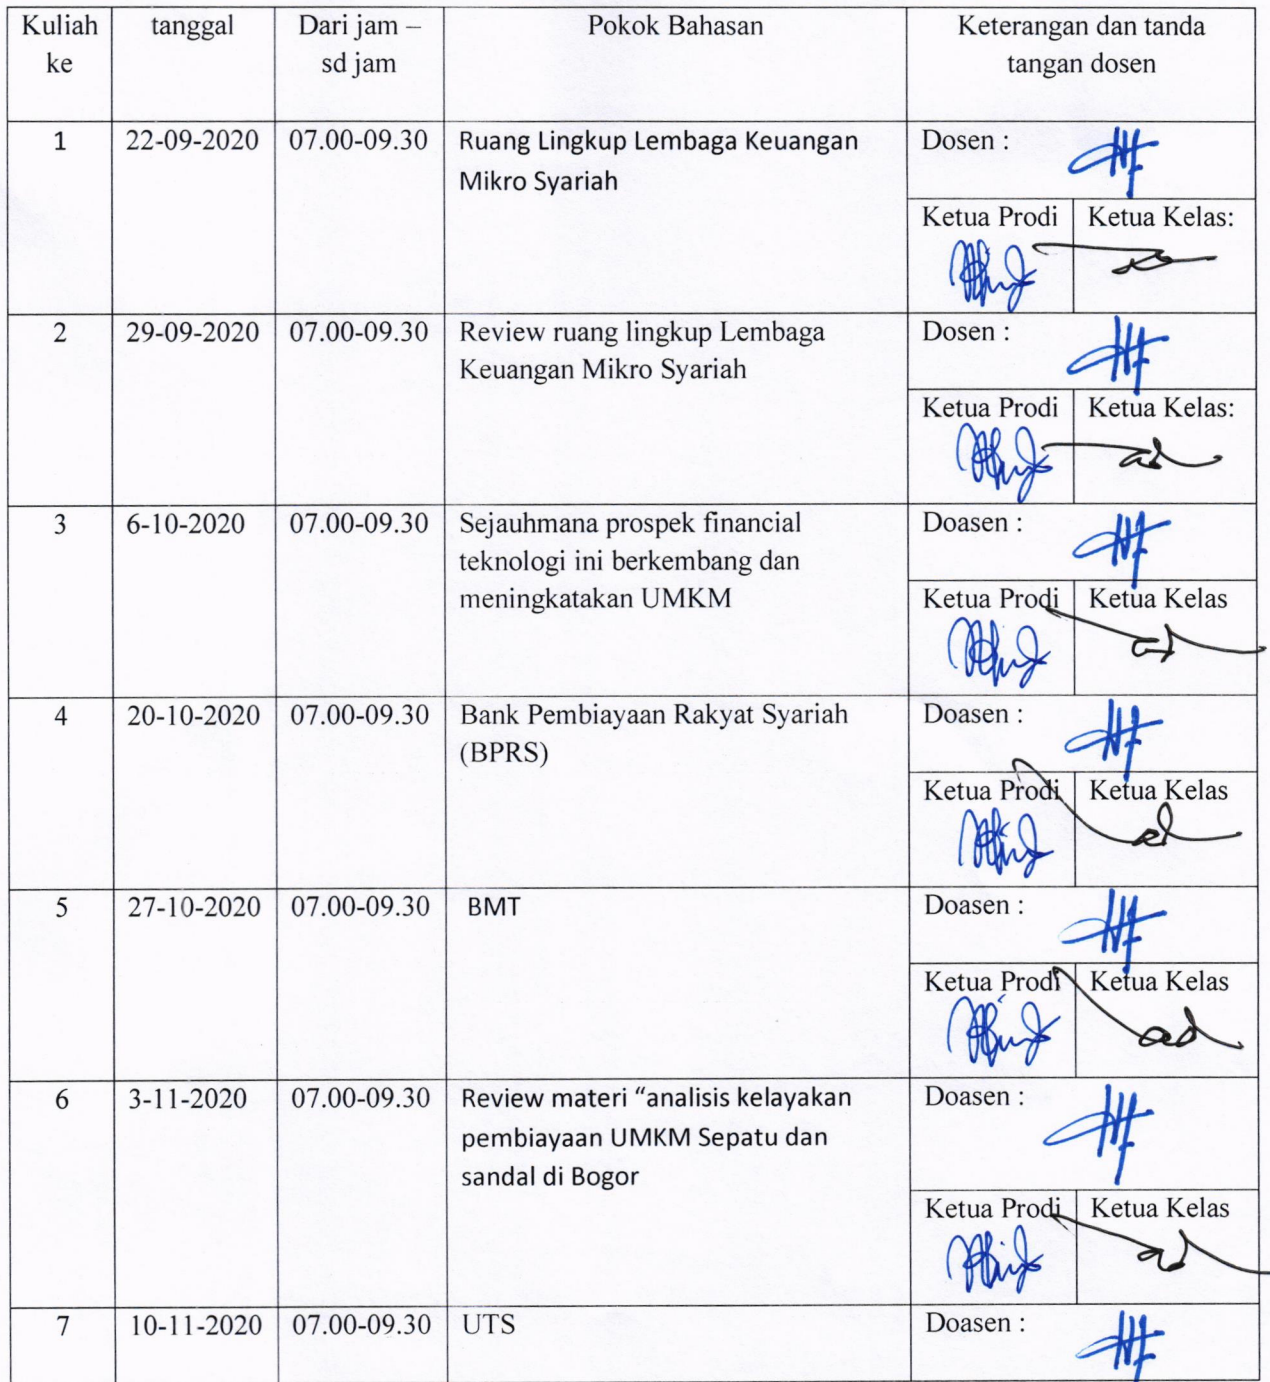 Kuliah ke
tanggal
Dari jam –
sd jam
Pokok Bahasan
Keterangan dan tanda
tangan dosen
1
22-09-2020
07.00-09.30
Ruang Lingkup Lembaga Keuangan
Mikro Syariah
Dosen :
Ketua Prodi
Ketua Kelas:
2
29-09-2020
07.00-09.30
Review ruang lingkup Lembaga
Keuangan Mikro Syariah
Dosen :
Ketua Prodi
Ketua Kelas:
3
6-10-2020
07.00-09.30
Sejauhmana prospek financial
teknologi ini berkembang dan
meningkatakan UMKM
Doasen :
Ketua Prodi
Ketua Kelas
4
20-10-2020
07.00-09.30
Bank Pembiayaan Rakyat Syariah
(BPRS)
Doasen :
Ketua Prodi
Ketua Kelas
5
27-10-2020
07.00-09.30
BMT
Doasen :
Ketua Prodi
Ketua Kelas
6
3-11-2020
07.00-09.30
Review materi “analisis kelayakan
pembiayaan UMKM Sepatu dan
sandal di Bogor
Doasen :
Ketua Prodi
Ketua Kelas
7
10-11-2020
07.00-09.30
UTS
Doasen :